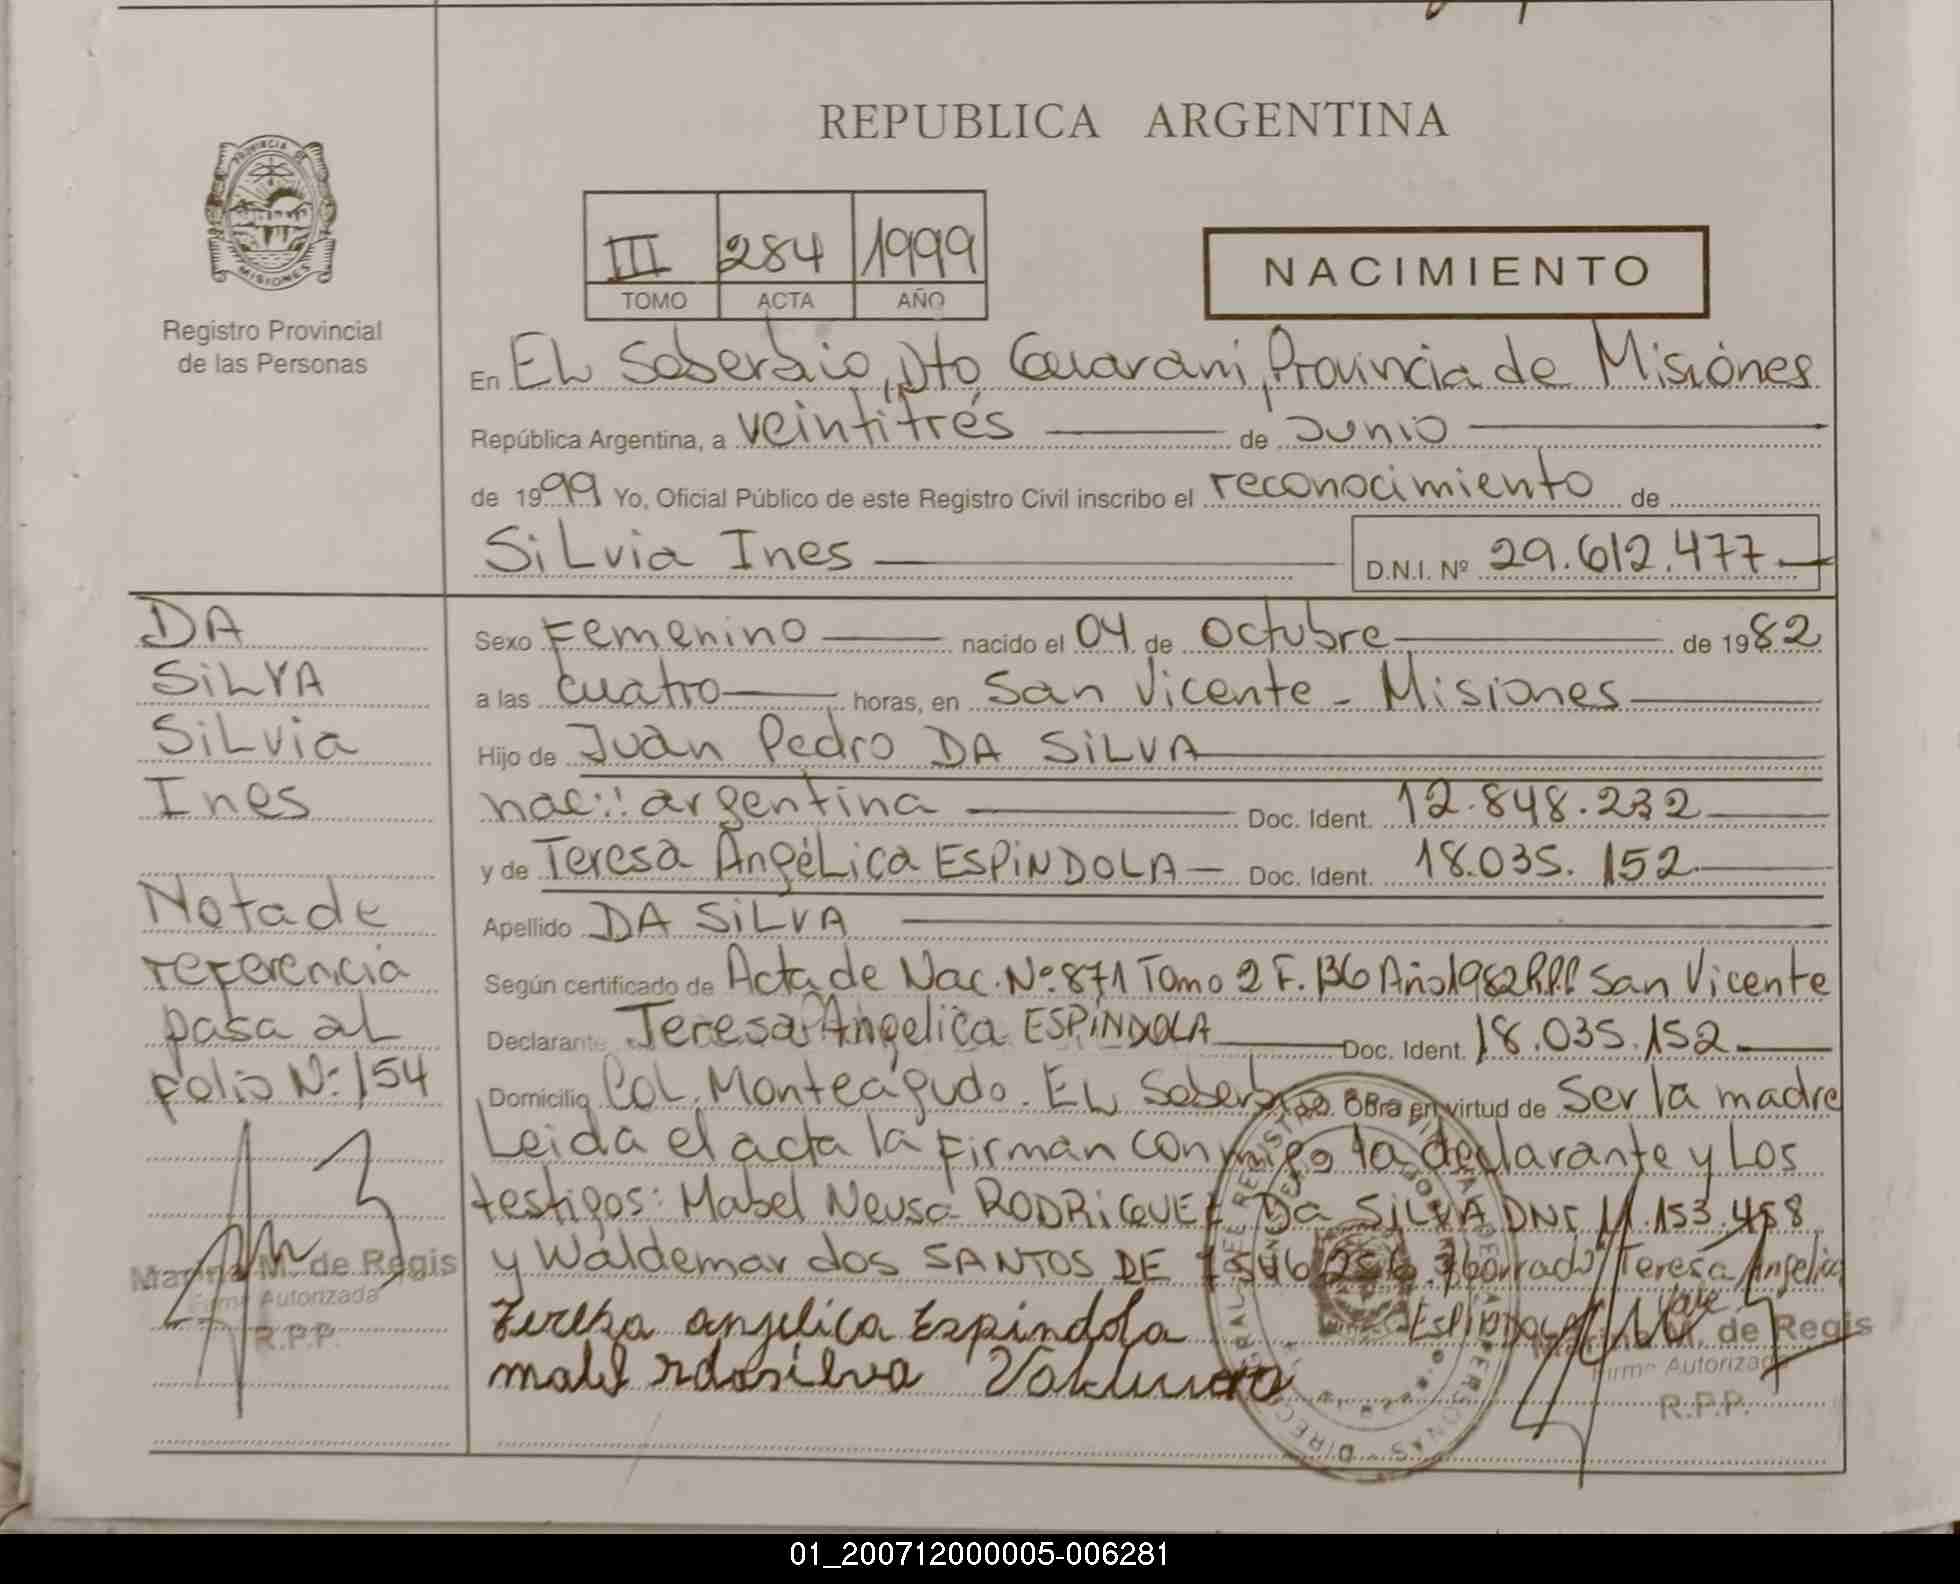 REPUBLICA ARGENTINA
PROVINCIA DE
MISIONES
Registro Provincial
de las Personas
III 284 1999
TOMO ACTA AÑO
NACIMIENTO
En EL Soberbio, Dto Guarani, Provincia de Misiones
República Argentina, a veintitrés de Junio
de 1999 Yo, Oficial Público de este Registro Civil inscribo el reconocimiento de
SiLvia Ines D.N.I. Nº 29.612.477
DA
SiLVA
SiLvia
Ines
Nota de
referencia
pasa aL
folio Nº: 154
Marina M. de Regis
Firma Autorizada
R.P.P.
Sexo Femenino nacido el 04 de Octubre de 1982
a las cuatro horas, en San Vicente - Misiones
Hijo de Juan Pedro DA SiLVA
nac:: argentina Doc. Ident. 12.848.232
y de Teresa AngéLica ESPiNDOLA Doc. Ident. 18.035.152
Apellido DA SiLVA
Según certificado de Acta de Nac. Nº 871 Tomo 2 F. 136 Año 1982 R.P.P San Vicente
Declarante Teresa Angelica ESPiNDOLA Doc. Ident. 18.035.152
Domicilio CoL. Monteagudo. EL Soberbio. Obra en virtud de Ser la madre
Leida el acta la firman conmigo la declarante y Los
testigos: Mabel Neusa RODRiGUEZ Da SiLVA DNI 11.153.458
y Waldemar dos SANTOS DE borrado Teresa Angelica
Espindola Vale
Tereza angelica Espindola
Marina M. de Regis
Firma Autorizada
R.P.P.
01_200712000005-006281